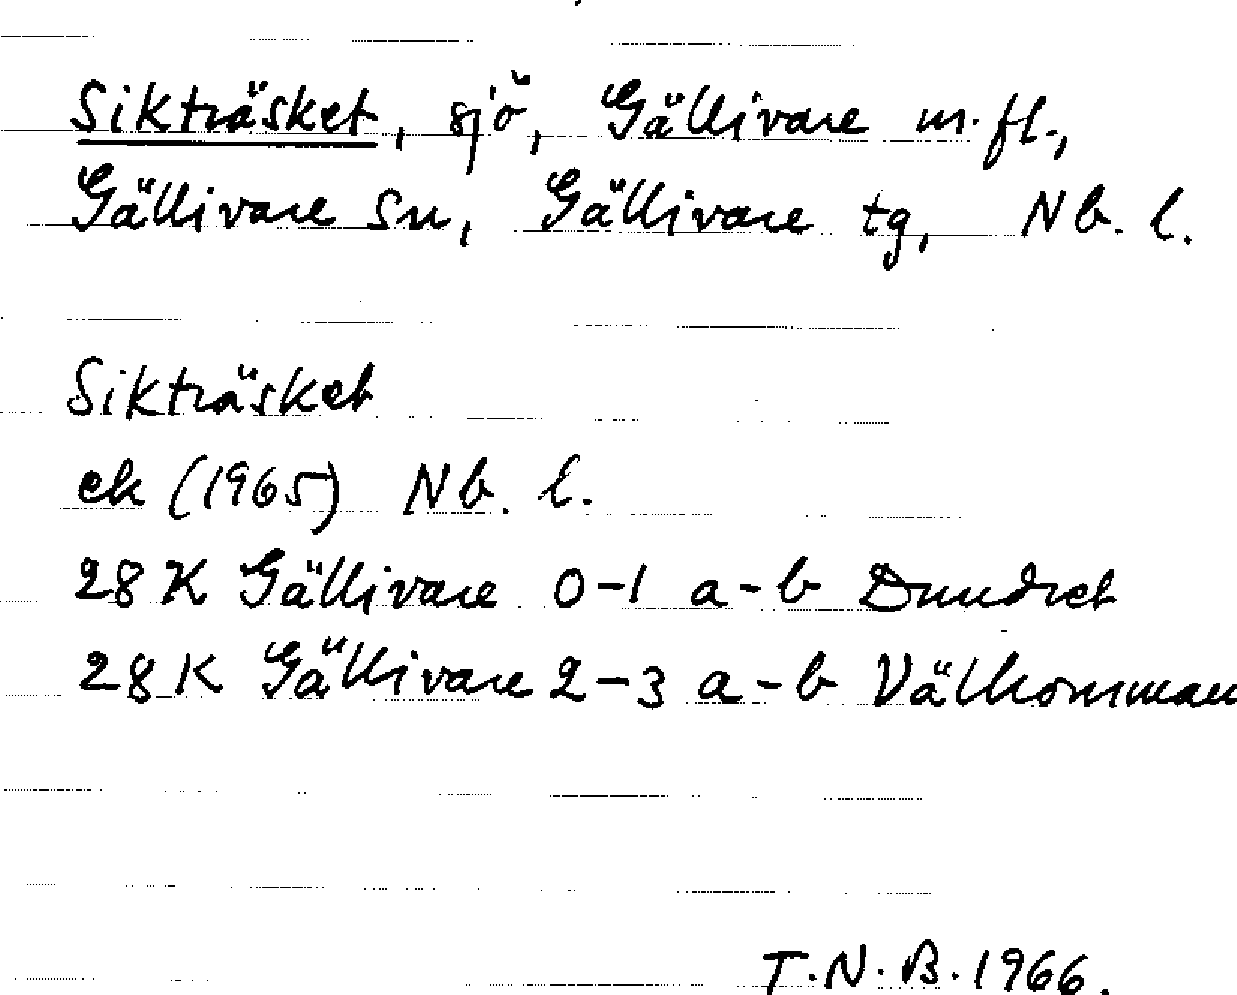 Sikträsket, sjö, Gällivare m.fl.,
Gällivare sn, Gällivare tg, Nb. l.
Sikträsket
ek (1965) Nb. l.
28 K Gällivare 0-1 a-b Dundret
28 K Gällivare 2-3 a-b Välkomman
T.N.B. 1966.